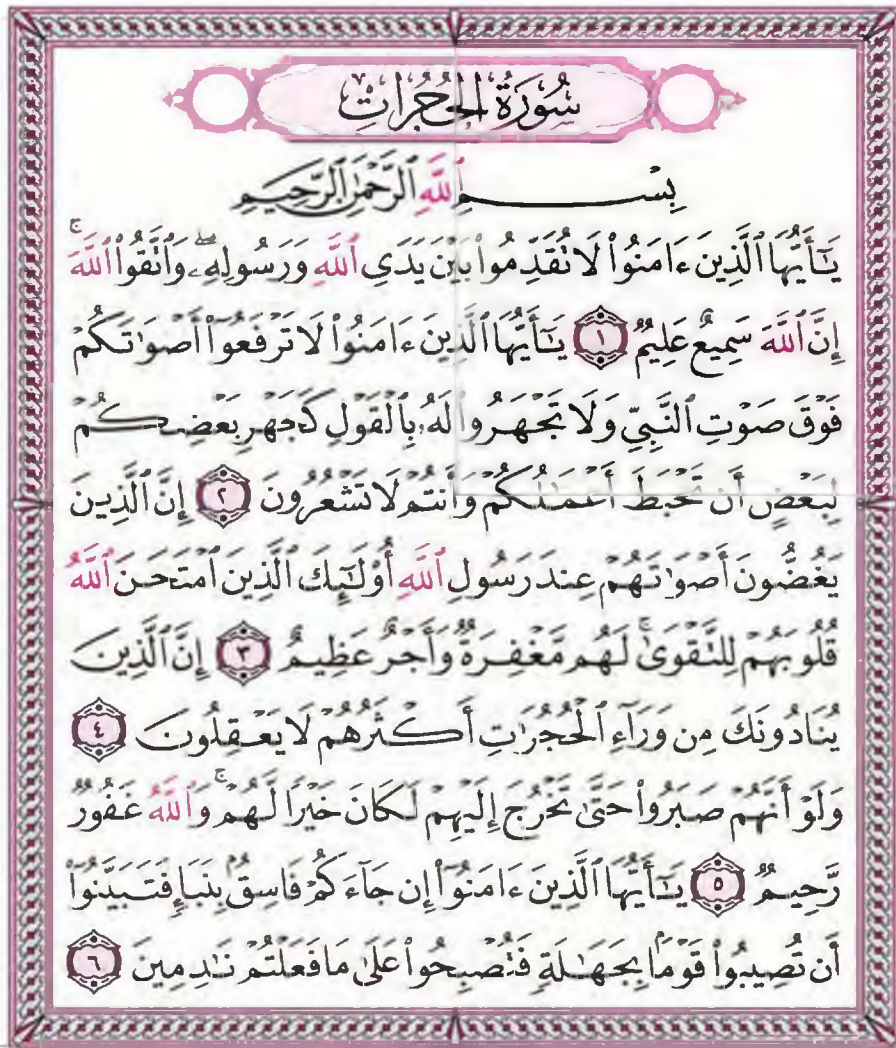 سُورَةُ الْحُجُرَاتِ
بِسْمِ ٱللَّهِ ٱلرَّحْمَٰنِ ٱلرَّحِيمِ
يَٰٓأَيُّهَا ٱلَّذِينَ ءَامَنُوا۟ لَا تُقَدِّمُوا۟ بَيْنَ يَدَىِ ٱللَّهِ وَرَسُولِهِۦ ۖ وَٱتَّقُوا۟ ٱللَّهَ ۚ
إِنَّ ٱللَّهَ سَمِيعٌ عَلِيمٌ ١ يَٰٓأَيُّهَا ٱلَّذِينَ ءَامَنُوا۟ لَا تَرْفَعُوٓا۟ أَصْوَٰتَكُمْ
فَوْقَ صَوْتِ ٱلنَّبِىِّ وَلَا تَجْهَرُوا۟ لَهُۥ بِٱلْقَوْلِ كَجَهْرِ بَعْضِكُمْ
لِبَعْضٍ أَن تَحْبَطَ أَعْمَٰلُكُمْ وَأَنتُمْ لَا تَشْعُرُونَ ٢ إِنَّ ٱلَّذِينَ
يَغُضُّونَ أَصْوَٰتَهُمْ عِندَ رَسُولِ ٱللَّهِ أُو۟لَٰٓئِكَ ٱلَّذِينَ ٱمْتَحَنَ ٱللَّهُ
قُلُوبَهُمْ لِلتَّقْوَىٰ ۚ لَهُم مَّغْفِرَةٌ وَأَجْرٌ عَظِيمٌ ٣ إِنَّ ٱلَّذِينَ
يُنَادُونَكَ مِن وَرَآءِ ٱلْحُجُرَٰتِ أَكْثَرُهُمْ لَا يَعْقِلُونَ ٤
وَلَوْ أَنَّهُمْ صَبَرُوا۟ حَتَّىٰ تَخْرُجَ إِلَيْهِمْ لَكَانَ خَيْرًا لَّهُمْ ۚ وَٱللَّهُ غَفُورٌ
رَّحِيمٌ ٥ يَٰٓأَيُّهَا ٱلَّذِينَ ءَامَنُوٓا۟ إِن جَآءَكُمْ فَاسِقٌۢ بِنَبَإٍ فَتَبَيَّنُوٓا۟
أَن تُصِيبُوا۟ قَوْمًۢا بِجَهَٰلَةٍ فَتُصْبِحُوا۟ عَلَىٰ مَا فَعَلْتُمْ نَٰدِمِينَ ٦